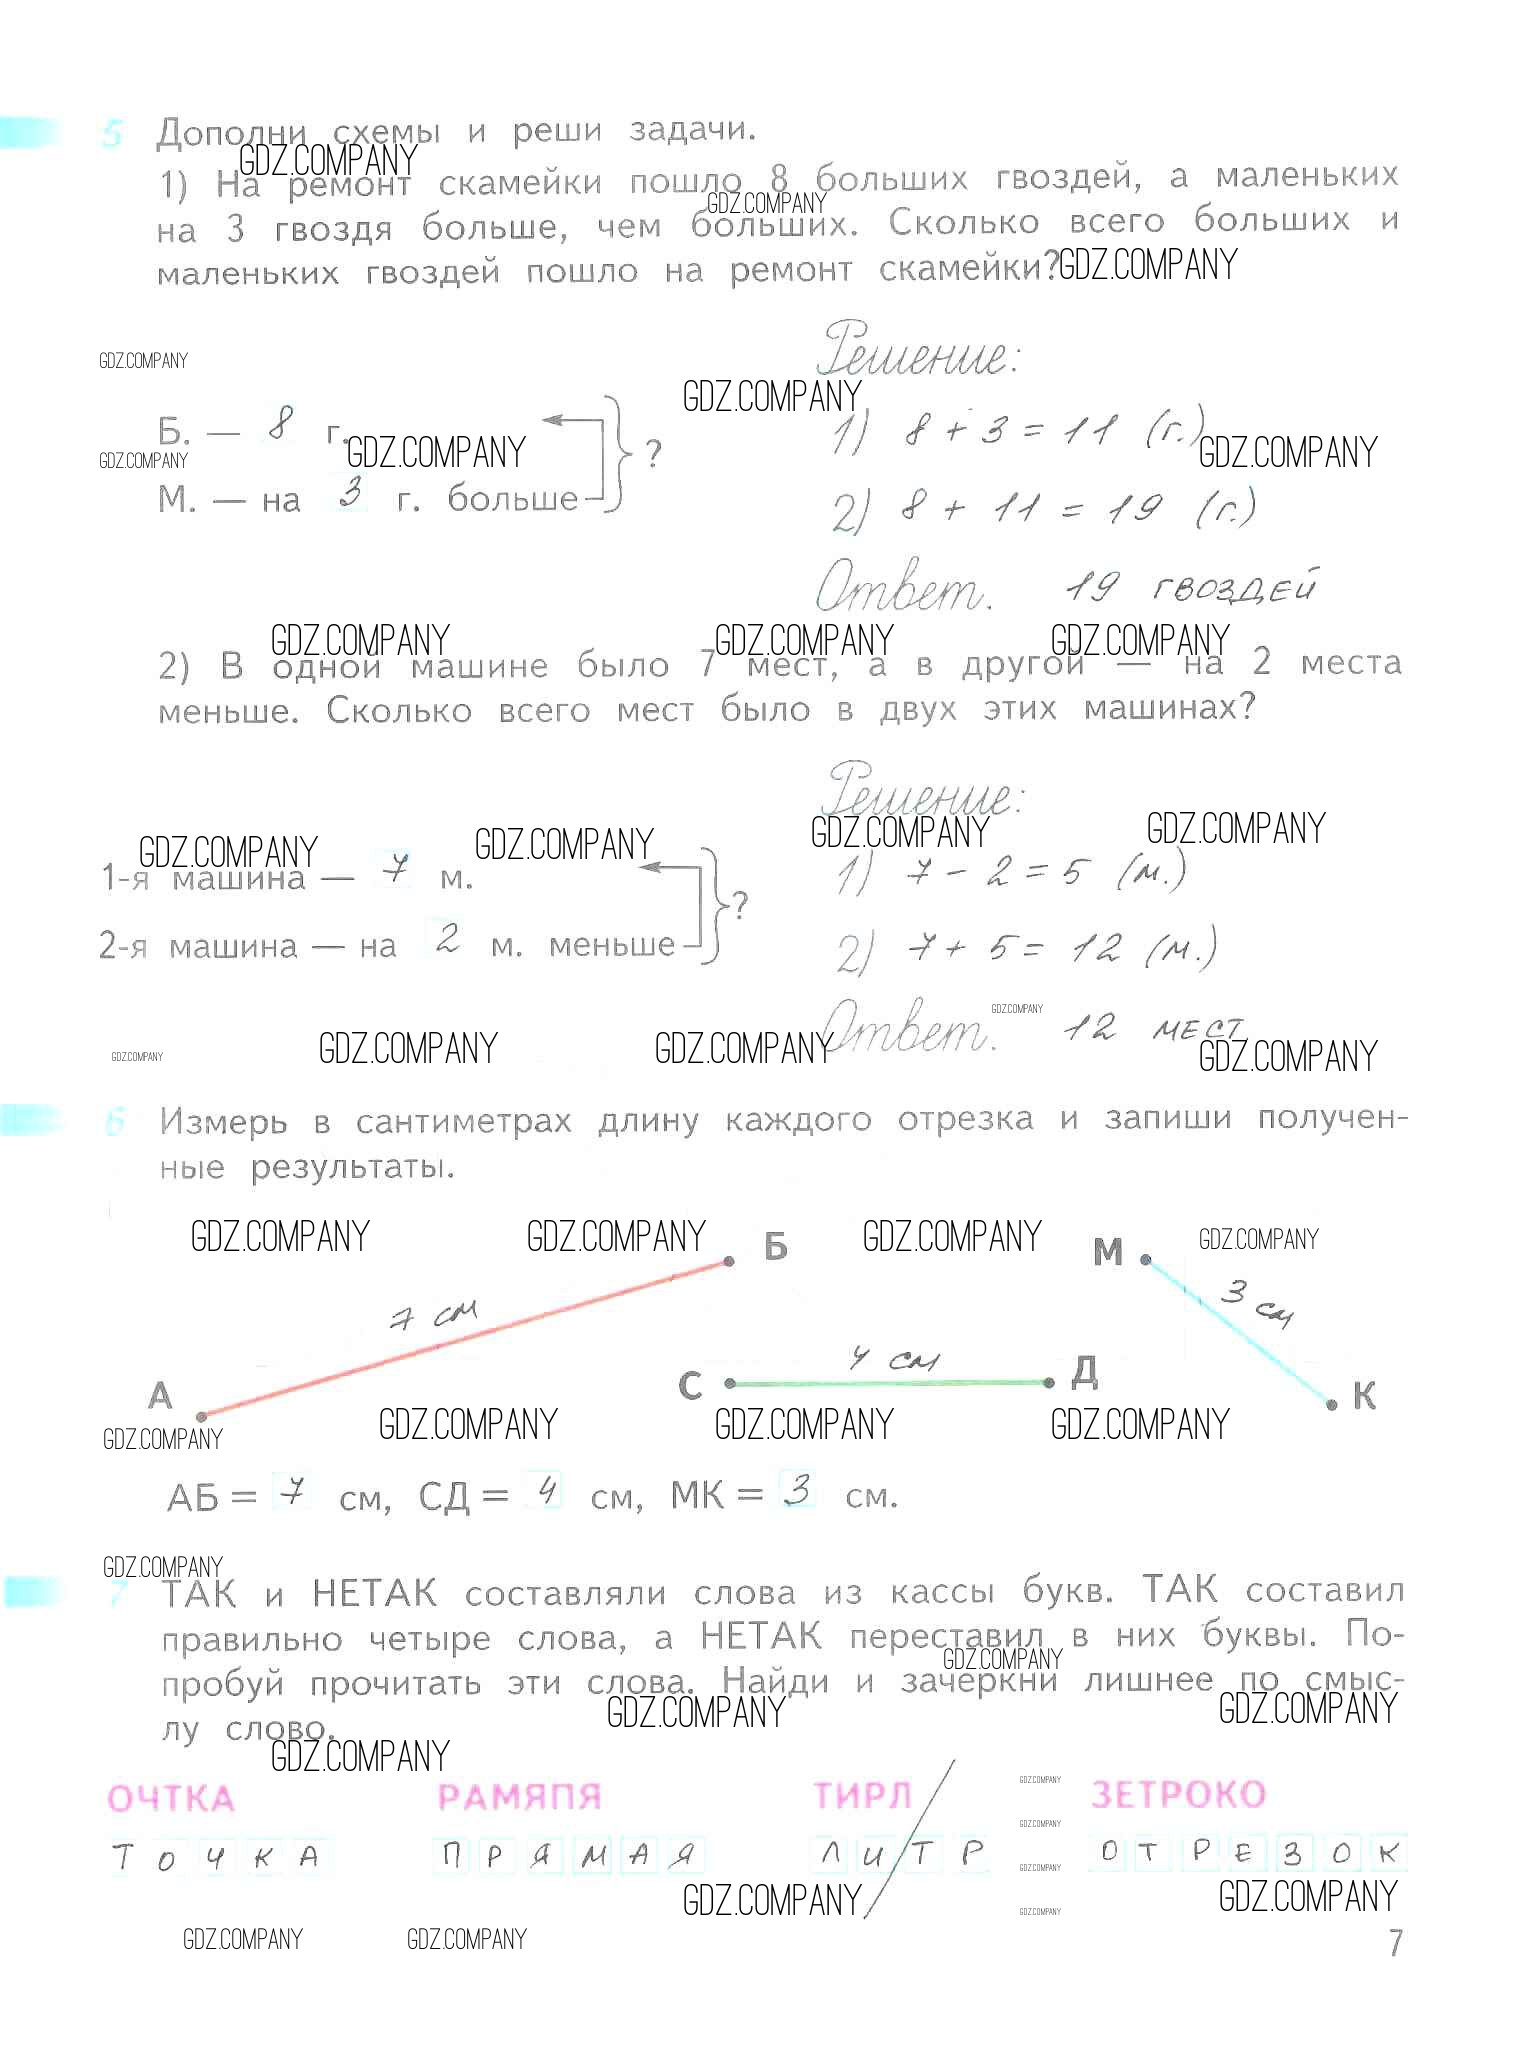 5 Дополни схемы и реши задачи.
GDZ.COMPANY
1) На ремонт скамейки пошло 8 больших гвоздей, а маленьких
GDZ.COMPANY
на 3 гвоздя больше, чем больших. Сколько всего больших и
маленьких гвоздей пошло на ремонт скамейки?
GDZ.COMPANY
GDZ.COMPANY
Решение:
GDZ.COMPANY
Б. — 8 г.
?
1) 8 + 3 = 11 (г.)
GDZ.COMPANY
GDZ.COMPANY
GDZ.COMPANY
М. — на 3 г. больше
2) 8 + 11 = 19 (г.)
Ответ. 19 гвоздей
GDZ.COMPANY
GDZ.COMPANY
GDZ.COMPANY
2) В одной машине было 7 мест, а в другой — на 2 места
меньше. Сколько всего мест было в двух этих машинах?
Решение:
GDZ.COMPANY
GDZ.COMPANY
GDZ.COMPANY
GDZ.COMPANY
1-я машина — 7 м.
?
1) 7 - 2 = 5 (м.)
2-я машина — на 2 м. меньше
2) 7 + 5 = 12 (м.)
GDZ.COMPANY
Ответ. 12 мест
GDZ.COMPANY
GDZ.COMPANY
GDZ.COMPANY
GDZ.COMPANY
6 Измерь в сантиметрах длину каждого отрезка и запиши получен-
ные результаты.
GDZ.COMPANY
GDZ.COMPANY
Б
GDZ.COMPANY
М
GDZ.COMPANY
7 см
3 см
4 см
А
С
Д
К
GDZ.COMPANY
GDZ.COMPANY
GDZ.COMPANY
GDZ.COMPANY
АБ = 7 см, СД = 4 см, МК = 3 см.
GDZ.COMPANY
7 ТАК и НЕТАК составляли слова из кассы букв. ТАК составил
правильно четыре слова, а НЕТАК переставил в них буквы. По-
GDZ.COMPANY
пробуй прочитать эти слова. Найди и зачеркни лишнее по смыс-
GDZ.COMPANY
GDZ.COMPANY
лу слово.
GDZ.COMPANY
ОЧТКА РАМЯПЯ ТИРЛ ЗЕТРОКО
GDZ.COMPANY
GDZ.COMPANY
Т О Ч К А П Р Я М А Я Л И Т Р О Т Р Е З О К
GDZ.COMPANY
GDZ.COMPANY
GDZ.COMPANY
GDZ.COMPANY
GDZ.COMPANY
GDZ.COMPANY
7